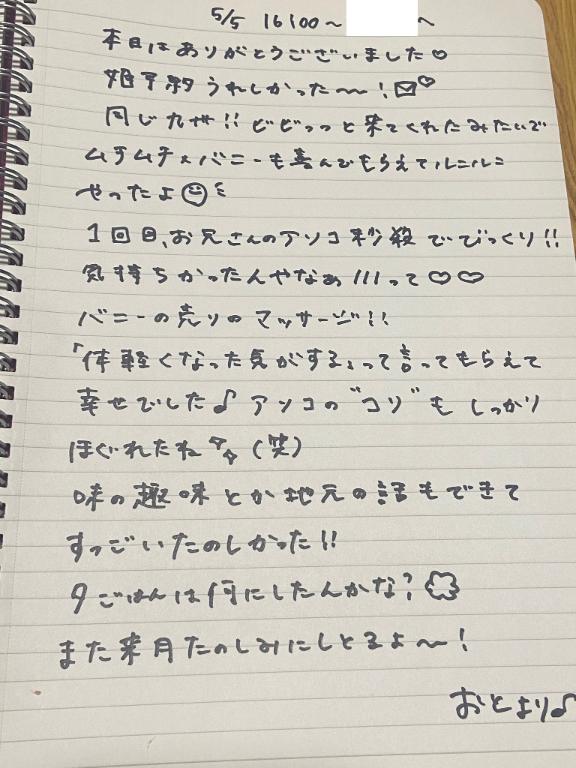 5/5 16:00〜 へ
本日はありがとうございました♡
姫予約うれしかった〜！✉♡
同じ九州!! ビビッっと来てくれたみたいで
ムチムチ×バニーも喜んでもらえてルンルン
やったよ☺
1回目、お兄さんのアソコ秒殺でびっくり!!
気持ちかったんやなぁ///って♡♡
バニーの売りのマッサージ!!
「体軽くなった気がする」って言ってもらえて
幸せでした♪アソコの"コリ"もしっかり
ほぐれたね（笑）
味の趣味とか地元の話もできて
すっごいたのしかった!!
夕ごはんは何にしたんかな？
また来月たのしみにしとるよ〜！
おとより♪